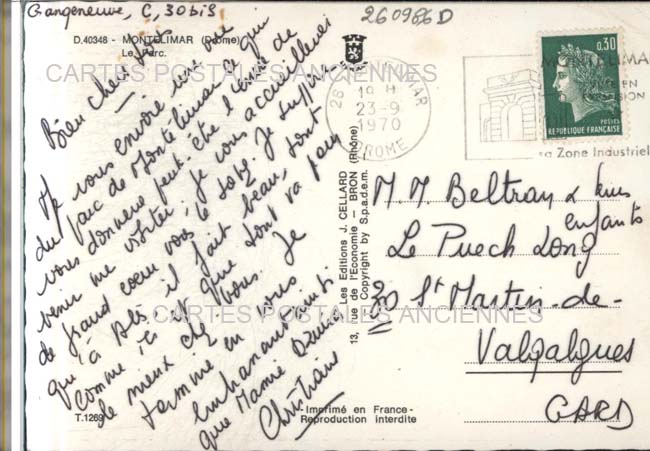 Gangeneuve, C, 30bis
260986D
D.40348 - MONTELIMAR (Drôme)
Le Parc.
CARTES POSTALES ANCIENNES
Bien chers tous
Je vous envoie une vue
du parc de Montélimar ce qui
vous donnera peut-être l'envie de
venir me visiter, je vous accueillerai
de grand coeur vous le savez. Je suppose
qu'à Alès il fait beau, tout
comme ici et que tout va pour
le mieux chez vous. Je
termine en vous
embrassant ainsi
que Mamie
Christiane
T.1269
Les Editions J. CELLARD
13, rue de l'Economie - BRON (Rhône)
Copyright by S.p.a.d.e.m.
Imprimé en France -
Reproduction interdite
26 MONTELIMAR
19 H
23-9
1970
DROME
MONTELIMAR
sa Zone Industriel
0,30
POSTES
REPUBLIQUE FRANÇAISE
M. M. Beltran & leurs
enfants
Le Puech Long
30 St Martin-de-
Valgalgues
GARD
CARTES POSTALES ANCIENNES